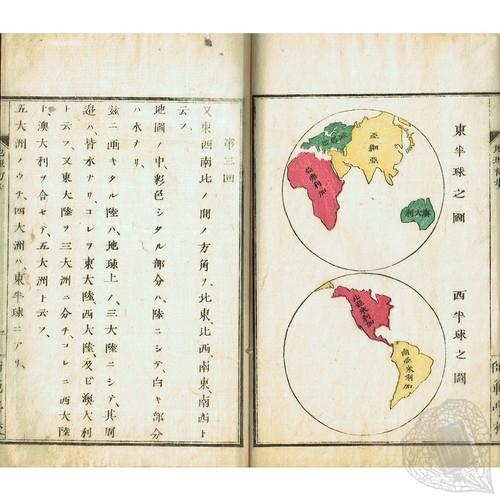 東半球之圖
亞細亞
歐羅巴
亞弗利加
澳大利
西半球之圖
北亞米利加
南亞米利加
又東西南北ノ間ノ方角ヲ、北東、北西、南東、南西ト
云フ、
第三回
地圖ノ中、彩色シタル部分ハ、陸ニシテ、白キ部分
ハ、水ナリ、
茲ニ畫キタル陸ハ、地球上ノ、三大陸ニシテ、其周
邉ハ、皆水ナリ、コレヲ東大陸、西大陸、及ビ、澳大利
ト云フ、又東大陸ヲ、三大洲ニ分チ、コレニ西大陸
ト、澳大利ヲ合セテ、五大洲ト云フ、
五大洲ノウチ、四大洲ハ、東半球ニアリ、